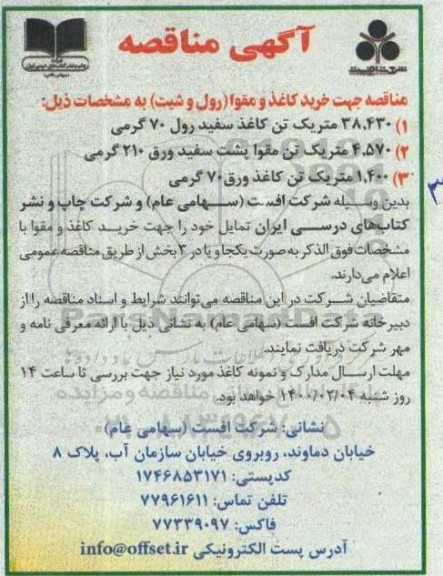 آگهی مناقصه
مناقصه جهت خرید کاغذ و مقوا (رول و شیت) به مشخصات ذیل:
۱) ۳۸,۴۳۰ متریک تن کاغذ سفید رول ۷۰ گرمی
۲) ۴,۵۷۰ متریک تن مقوا پشت سفید ورق ۲۱۰ گرمی
۳) ۱,۴۰۰ متریک تن کاغذ ورق ۷۰ گرمی
بدین وسیله شرکت افست (سهامی عام) و شرکت چاپ و نشر
کتاب‌های درسی ایران تمایل خود را جهت خرید کاغذ و مقوا با
مشخصات فوق الذکر به صورت یکجا و یا در ۳ بخش از طریق مناقصه عمومی
اعلام می‌دارند.
متقاضیان شرکت در این مناقصه می‌توانند شرایط و اسناد مناقصه را از
دبیرخانه شرکت افست (سهامی عام) به نشانی ذیل با ارائه معرفی نامه و
مهر شرکت دریافت نمایند.
مهلت ارسال مدارک و نمونه کاغذ مورد نیاز جهت بررسی تا ساعت ۱۴
روز شنبه ۱۴۰۰/۰۲/۰۴ خواهد بود.
نشانی: شرکت افست (سهامی عام)
خیابان دماوند، روبروی خیابان سازمان آب، پلاک ۸
کدپستی: ۱۷۴۶۸۵۳۱۷۱
تلفن تماس: ۷۷۹۶۱۶۱۱
فاکس: ۷۷۳۳۹۰۹۷
آدرس پست الکترونیکی info@offset.ir
ParsNamadData